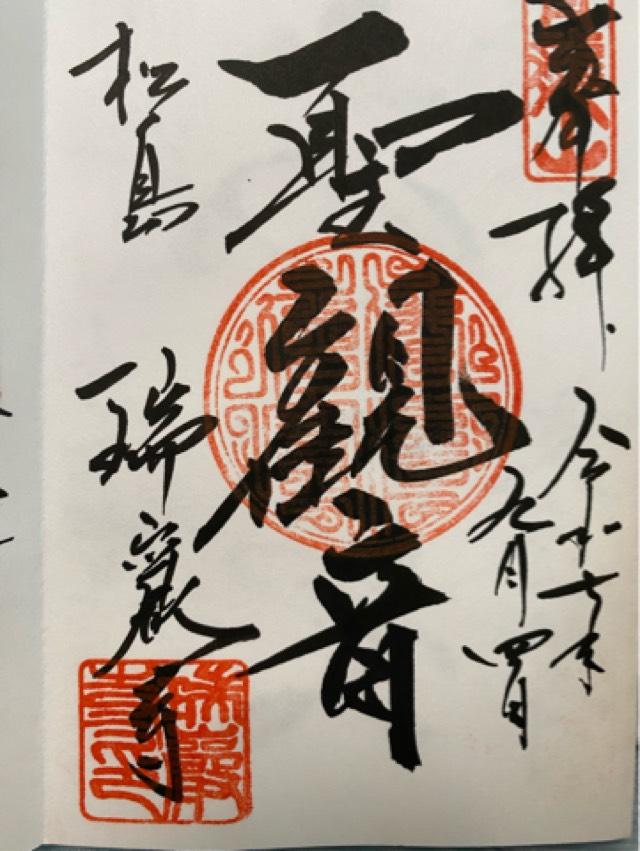 奉拝
令和七年
九月四日
聖観音
松島
瑞巌寺